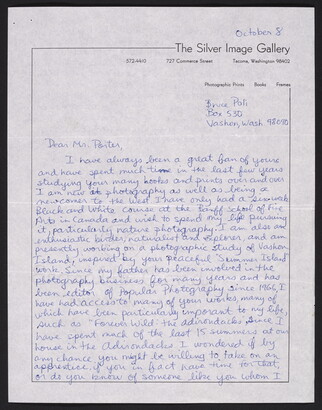 October 8
The Silver Image Gallery
572-4410 727 Commerce Street Tacoma, Washington 98402
Photographic Prints Books Frames
Bruce Pati
Box 530
Vashon, Wash. 98070
Dear Mr. Porter,
I have always been a great fan of yours
and have spent much time in the last few years
studying your many books and prints over and over
I am new to photography as well as being a
newcomer to the west. I have only had a
Black and White course at the Banff School of Fine
Arts in Canada and wish to spend my life pursuing
it, particularly nature photography. I am also an
enthusiastic birder, naturalist and explorer, and am
presently working on a photographic study of Vashon
Island, inspired by your peaceful "Summer Island"
work. Since my father has been involved in the
photography business for many years and has
been editor of Popular Photography since 1966, I
have had access to many of your works, many of
which have been particularly important to my life,
such as "Forever Wild: the Adirondacks," since I
have spent much of the last 15 summers at our
house in the Adirondacks. I wondered if by
any chance you might be willing to take on an
apprentice if you in fact have time for that,
or do you know of someone like you whom I